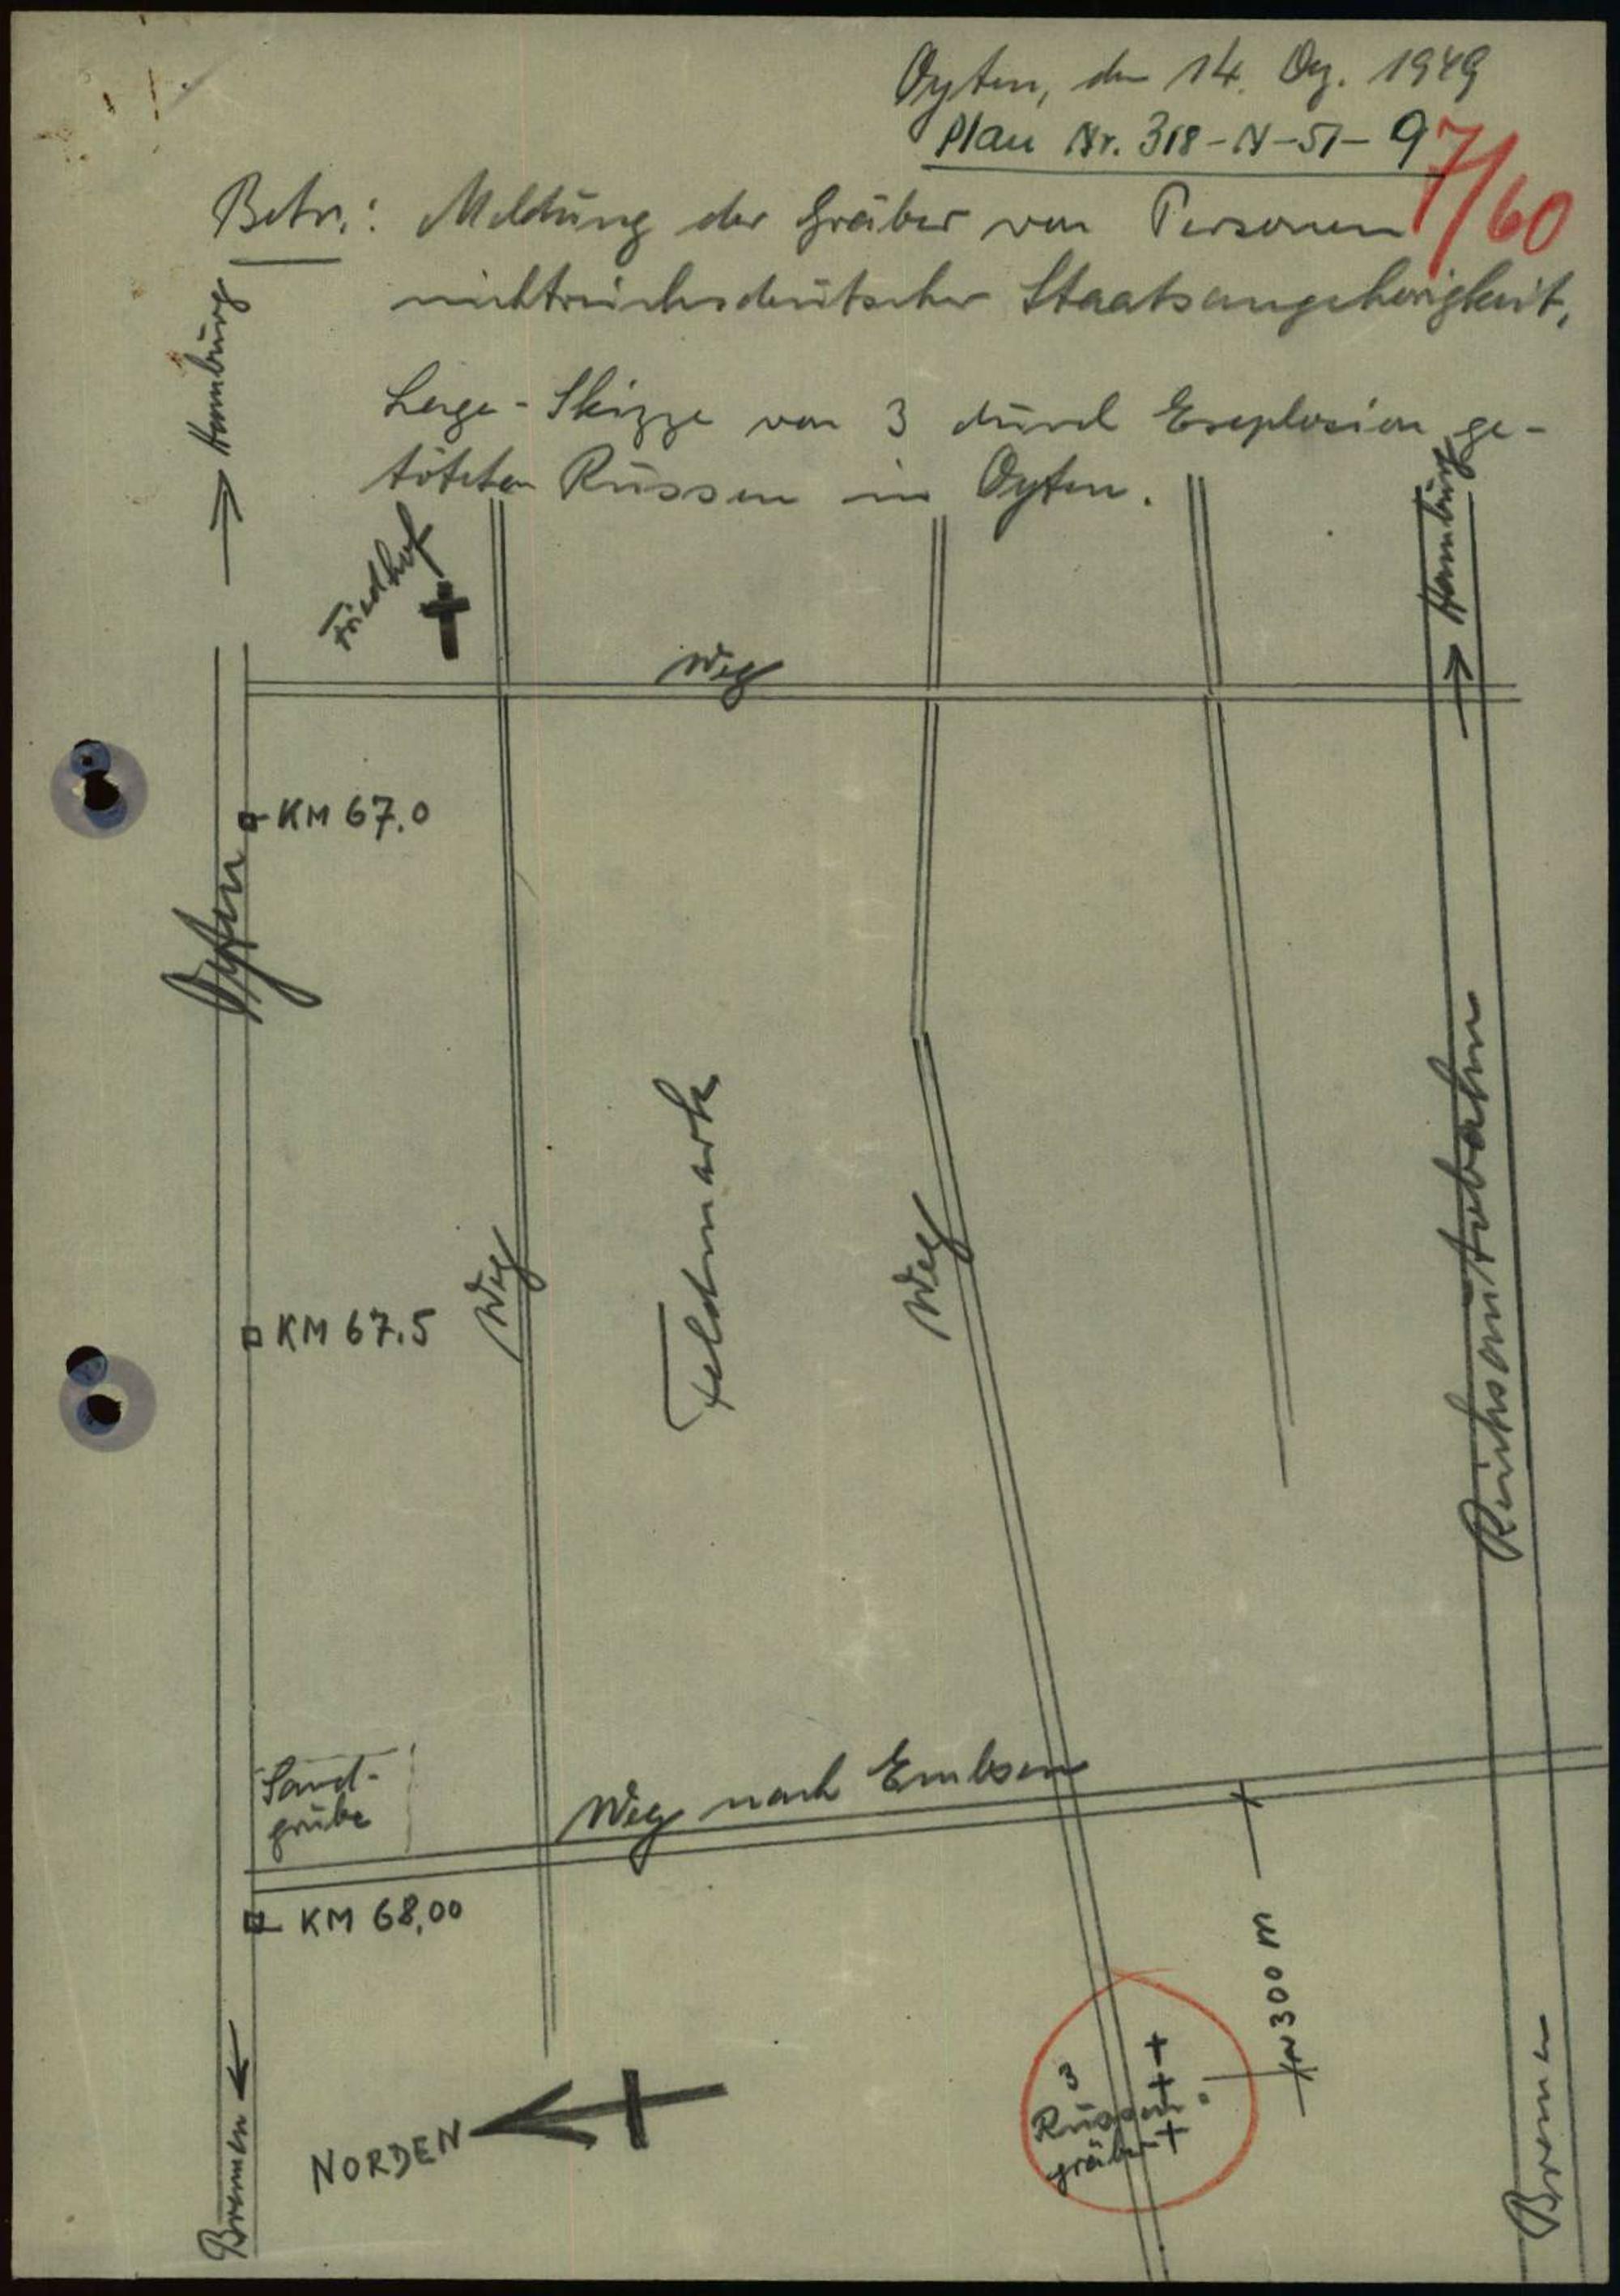 Oyten, den 14. Dez. 1949
Plan Nr. 318-N-51-9
7/60
Betr.: Meldung der Gräber von Personen
nichtreichsdeutscher Staatsangehörigkeit,
Lage-Skizze von 3 durch Explosion ge-
töteten Russen in Oyten.
Hamburg
Hamburg
Friedhof
Weg
KM 67.0
Oyten
Feldmark
Reichsautobahn
Weg
Weg
KM 67.5
Sand-
grube
Weg nach Embsen
KM 68,00
~300 m
3
Russen-
gräber
NORDEN
Bremen
Bremen